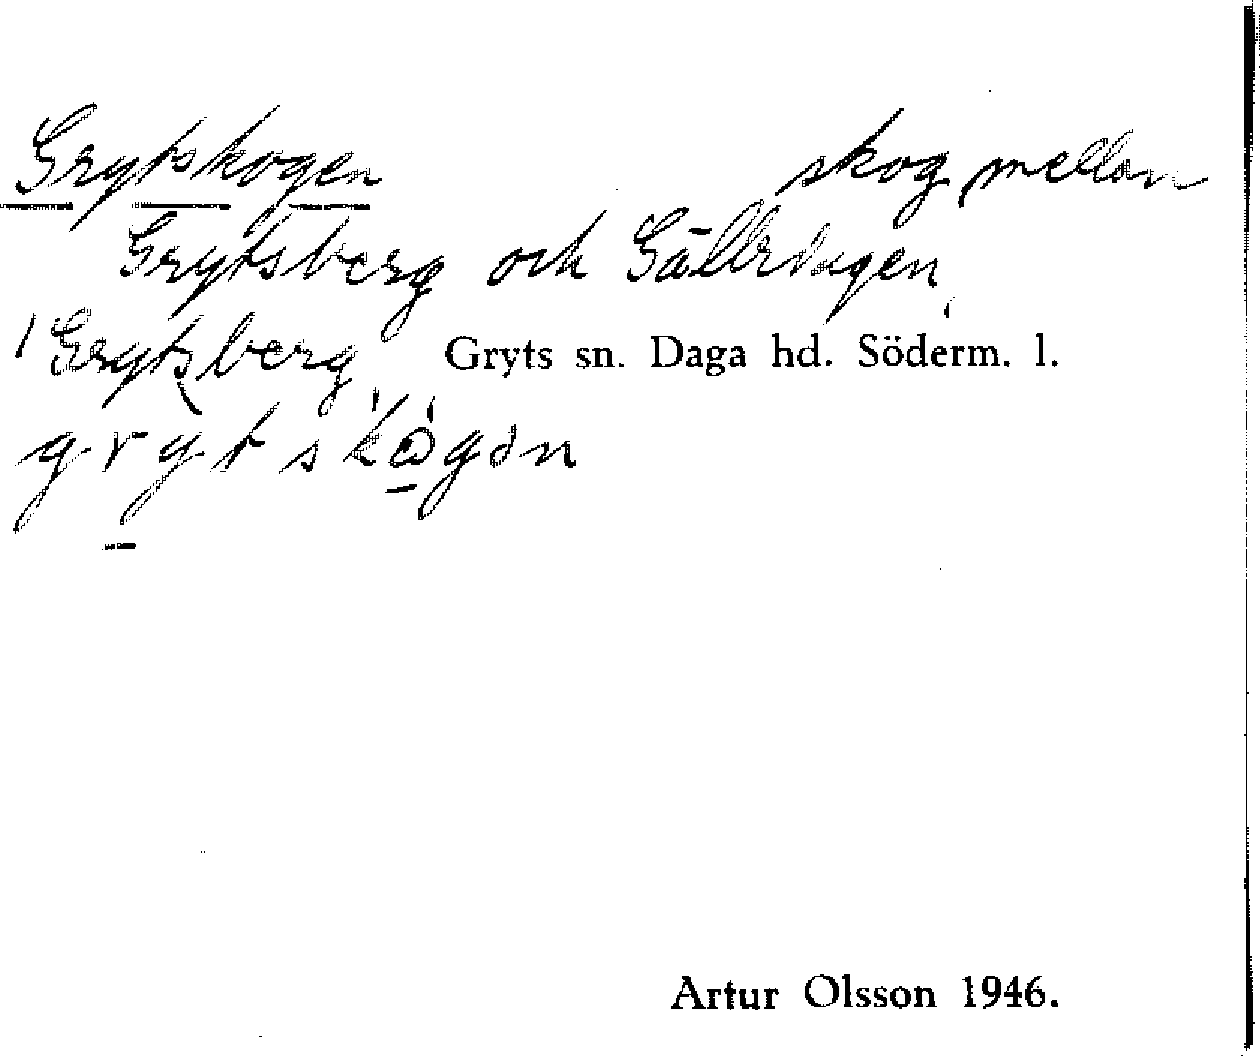 Grytskogen skog mellan
Grytsberg och Gällringen,
/ Grytsberg Gryts sn. Daga hd. Söderm. l.
Artur Olsson 1946.